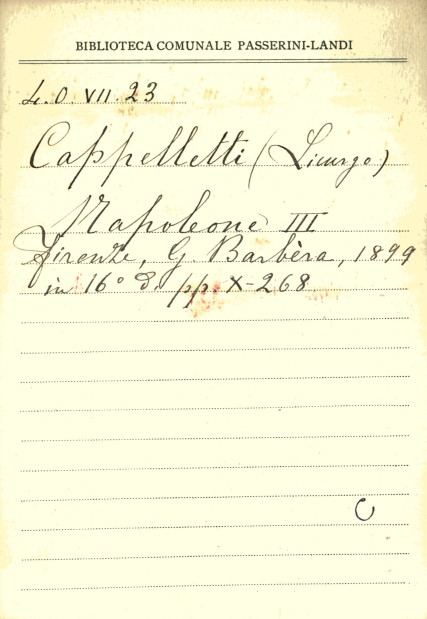 BIBLIOTECA COMUNALE PASSERINI-LANDI
4.O.VII.23
Cappelletti (Licurgo)
Napoleone III
Firenze, G. Barbèra, 1899
in 16° pp. X-268.
C